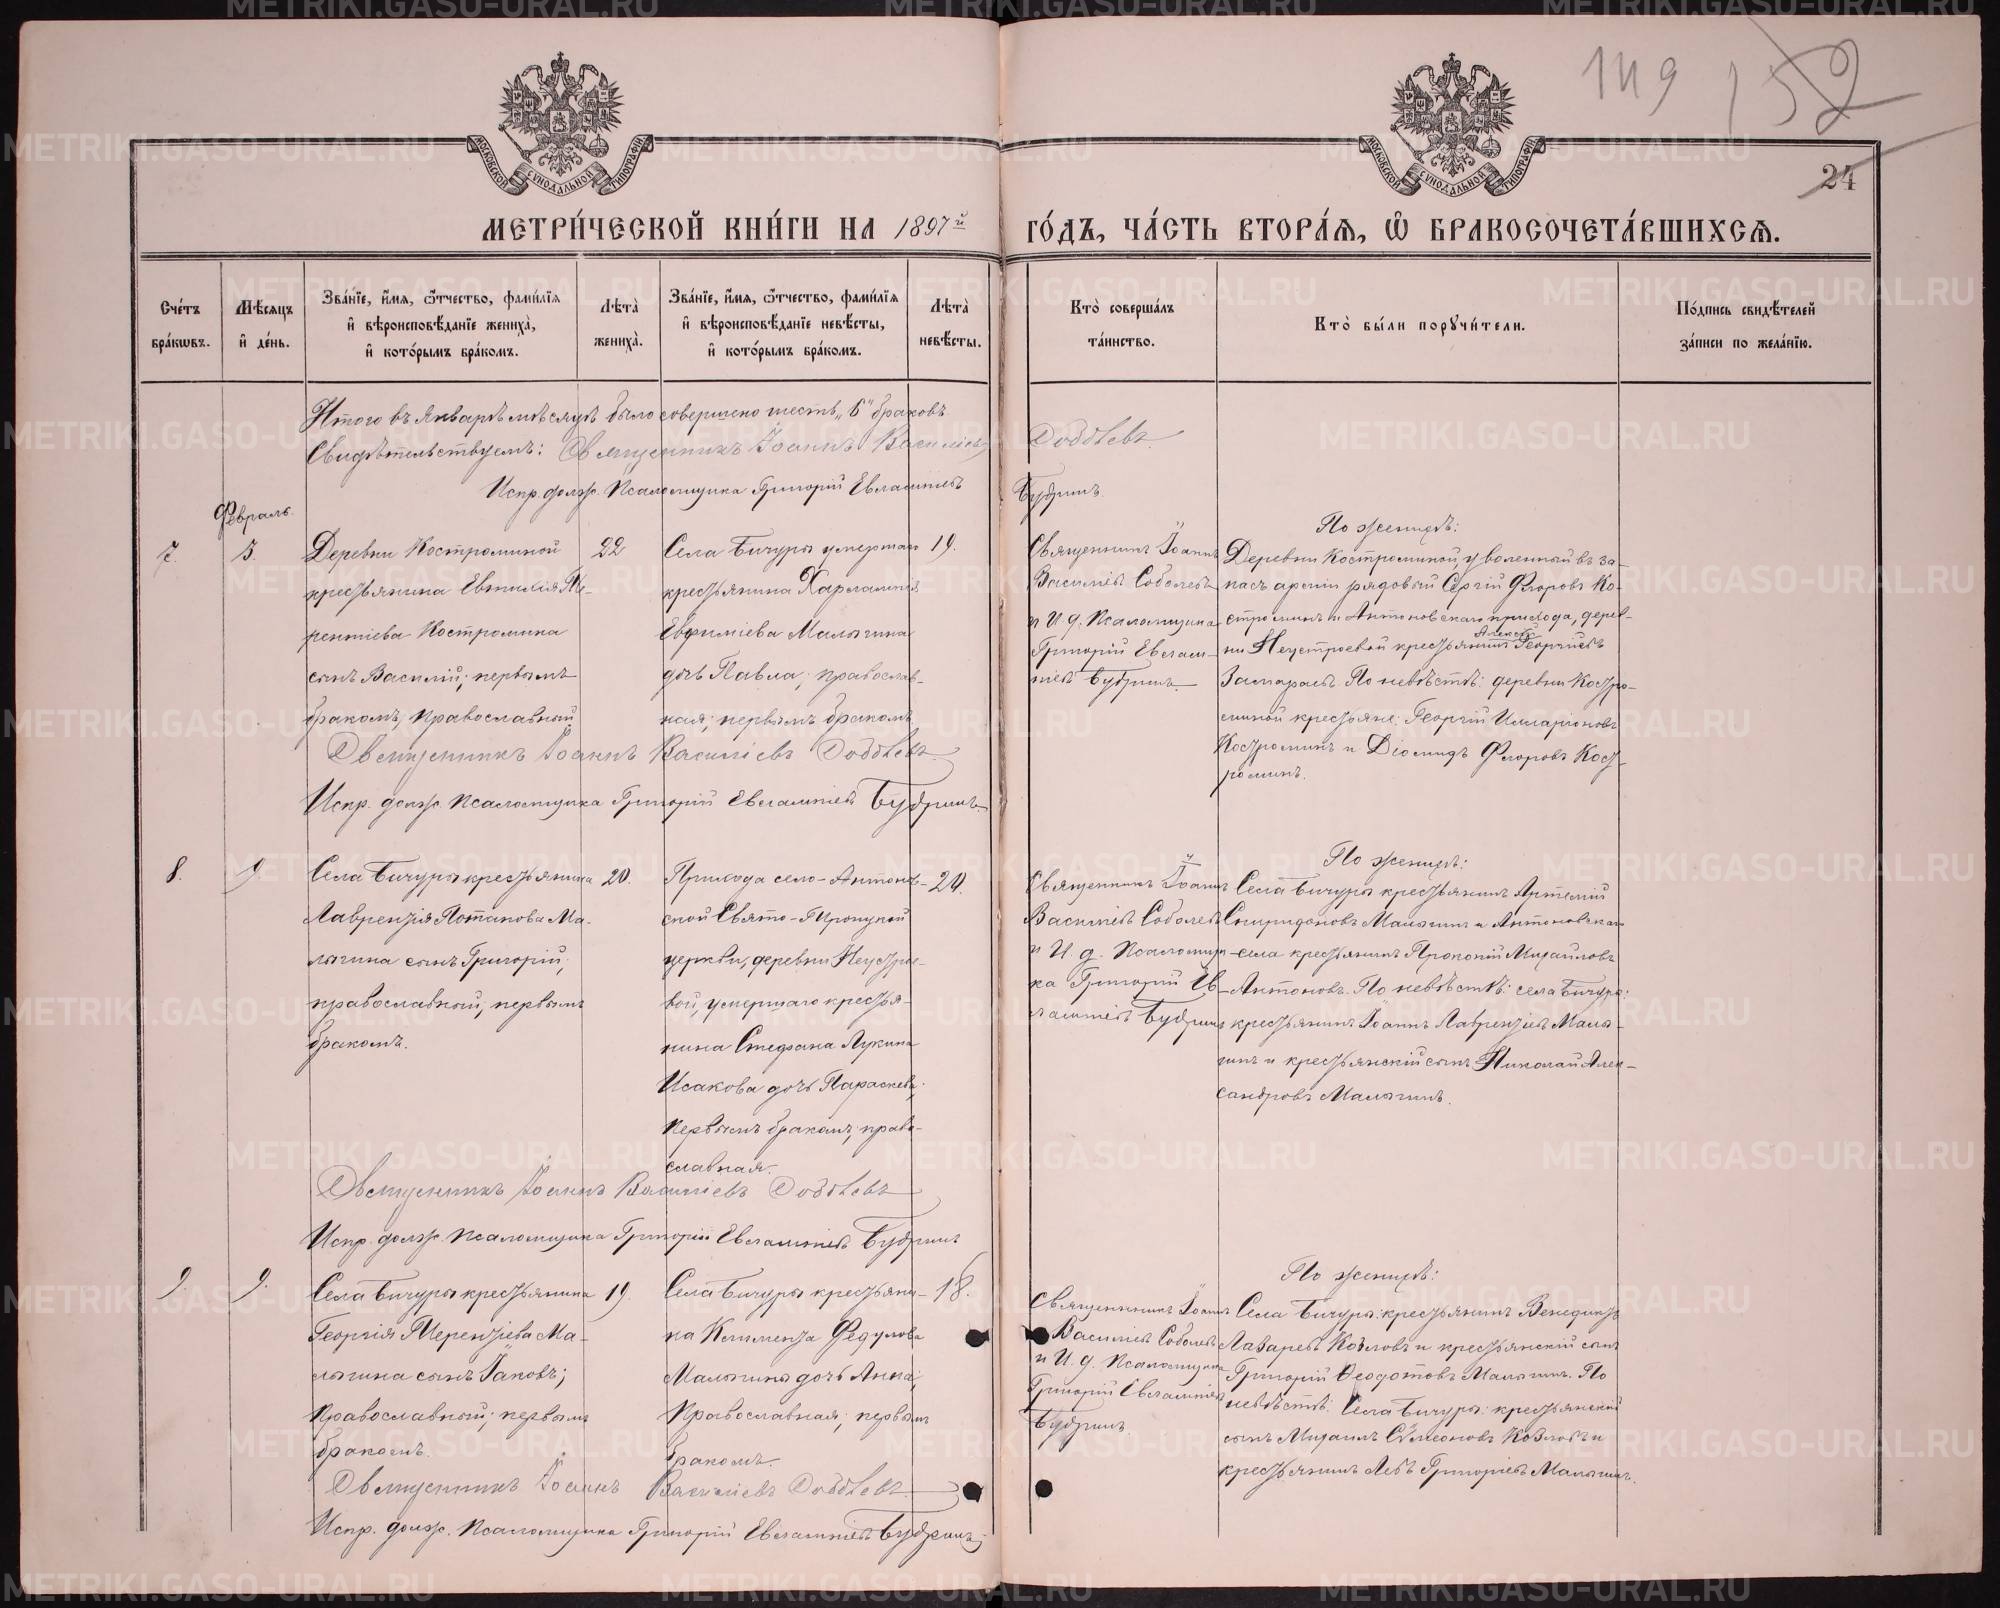 149 152
24
МОСКОВСКОЙ СѴНОДАЛЬНОЙ ТИПОГРАФІИ
МОСКОВСКОЙ СѴНОДАЛЬНОЙ ТИПОГРАФІИ
МЕТРИ́ЧЕСКОЙ КНИ́ГИ НА 1897й ГО́ДЪ, ЧА́СТЬ ВТОРА́Ѧ, Ѡ҆ БРАКОСОЧЕТА́ВШИХСѦ.
Сче́тъ бра́кѡвъ.
Мѣ́сѧцъ и҆ де́нь.
Зва́нїе, и҆́мѧ, ѻ҆́тчество, фами́лїѧ и҆ вѣроисповѣ́данїе жениха̀, и҆ кото́рымъ бра́комъ.
Лѣта̀ жениха̀.
Зва́нїе, и҆́мѧ, ѻ҆́тчество, фами́лїѧ и҆ вѣроисповѣ́данїе невѣ́сты, и҆ кото́рымъ бра́комъ.
Лѣта̀ невѣ́сты.
Кто̀ соверша́лъ та́инство.
Кто̀ бы́ли порꙋчи́тели.
По́дпись свидѣ́телей за́писи по жела́нїю.
Итого въ Январѣ мѣсяцѣ было совершено шесть „6“ браковъ
Свидѣтельствуемъ: Священникъ Іоаннъ Василіевъ Соболевъ.
Испр. долж. Псаломщика Григорій Евлампіевъ Будринъ.
Февраль.
7.
5.
Деревни Костроминой
крестьянина Евтихія Те-
рентіева Костромина
сынъ Василій; первымъ
бракомъ, православный
22
Села Бичуры умершаго
крестьянина Харлампія
Евфиміева Малыгина
дочь Павла; православ-
ная; первымъ бракомъ
19.
Священникъ Іоаннъ
Василіевъ Соболевъ
и И. д. Псаломщика
Григорій Евлам-
піевъ Будринъ.
По женихѣ:
Деревни Костроминой, уволенный въ за-
пасъ арміи рядовый Сергій Флоровъ Ко-
строминъ и Антоновскаго прихода, дерев-
ни Неустроевой крестьянинъ Алексѣй Георгіевъ
Замараевъ. По невѣстѣ: деревни Костро-
миной крестьяне: Георгій Илларіоновъ
Костроминъ и Діомидъ Флоровъ Кост-
роминъ.
Священникъ Іоаннъ Василіевъ Соболевъ.
Испр. долж. Псаломщика Григорій Евлампіевъ Будринъ.
8.
9
Села Бичуры крестьянина
Лаврентія Потапова Ма-
лыгина сынъ Григорій;
православный, первымъ
бракомъ.
20.
Прихода село-Антонов-
ской Свято-Троицкой
церкви, деревни Неустро-
вой, умершаго крестья-
нина Стефана Лукина
Исакова дочь Параскева;
первымъ бракомъ; право-
славная.
20.
Священникъ Іоаннъ
Василіевъ Соболевъ
и И. д. Псаломщи-
ка Григорій Ев-
лампіевъ Будринъ
По женихѣ:
Села Бичуры крестьянинъ Артемій
Спиридоновъ Малыгинъ и Антоновскаго
села крестьянинъ Прокопій Михаиловъ
Антоновъ. По невѣстѣ: села Бичуры:
крестьянинъ Іоаннъ Лаврентіевъ Малы-
гинъ и крестьянскій сынъ Николай Алек-
сандровъ Малыгинъ.
Священникъ Іоаннъ Василіевъ Соболевъ
Испр. долж. Псаломщика Григорій Евлампіевъ Будринъ
9.
9.
Села Бичуры крестьянина
Георгія Терентіева Ма-
лыгина сынъ Іаковъ;
Православный; первымъ
бракомъ.
19
Села Бичуры крестьяни-
на Климента Федулова
Малыгина дочь Анна;
Православная; первымъ
бракомъ.
18.
Священникъ Іоаннъ
Василіевъ Соболевъ
и И. д. Псаломщика
Григорій Евлампіевъ
Будринъ.
По женихѣ:
Села Бичуры: крестьянинъ Венедиктъ
Лазаревъ Козловъ и крестьянскій сынъ
Григорій Ѳеодотовъ Малыгинъ. По
невѣстѣ: Села Бичуры: крестьянскій
сынъ Михаилъ Сѵмеоновъ Козловъ и
крестьянинъ Левъ Григоріевъ Малыгинъ.
Священникъ Іоаннъ Василіевъ Соболевъ.
Испр. долж. Псаломщика Григорій Евлампіевъ Будринъ.
METRIKI.GASO-URAL.RU